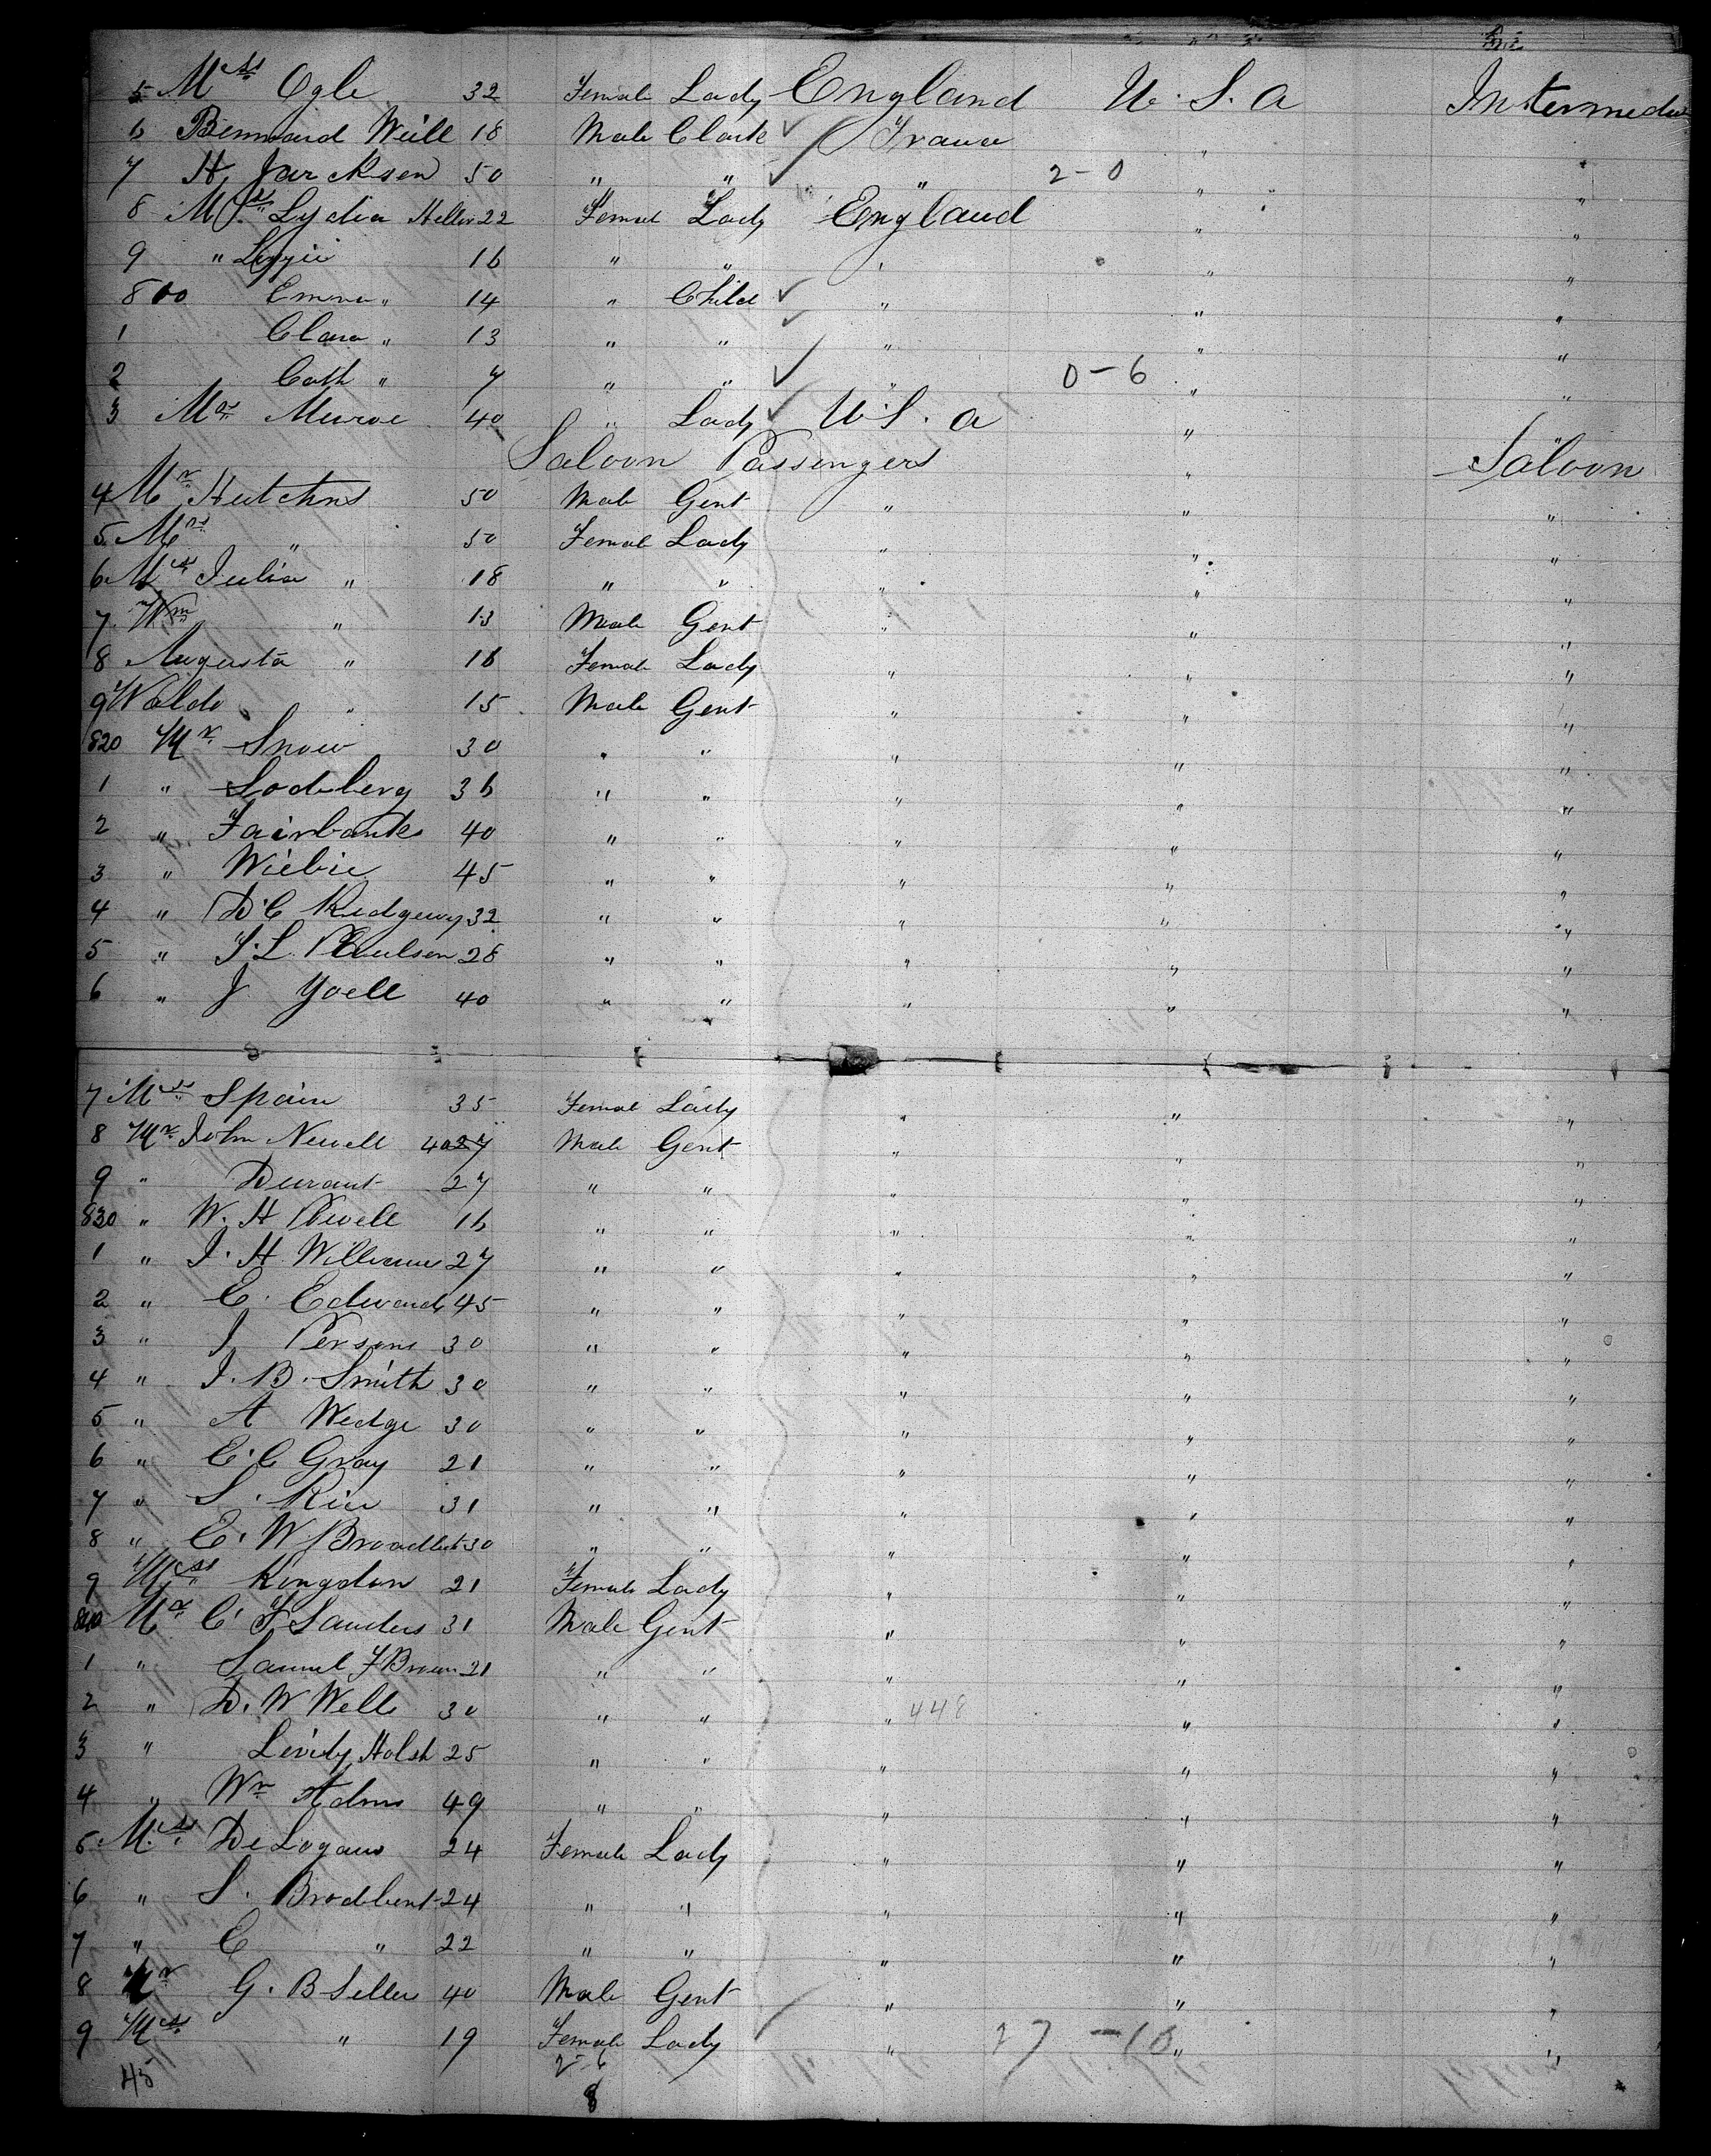 5 Mrs Ogle 32 Female Lady England U. S. A Intermediate
6 Bernard Weill 18 Male Clark France " "
7 H. Jackson 50 " " " 2-0 " "
8 Mrs Lydia Heller 22 Female Lady England " "
9 " Lizzie 16 " " " " "
800 Emma " 14 " Child " " "
1 Clara " 13 " " " " "
2 Cath " 7 " " " 0-6 " "
3 Mrs Munroe 40 " Lady U. S. A " "
Saloon Passengers " Saloon
4 Mr Hutchins 50 Male Gent " " "
5 Mrs " 50 Female Lady " " "
6 Miss Julia " 18 " " " " "
7 Wm " 13 Male Gent " " "
8 Augusta " 16 Female Lady " " "
9 Waldo " 15 Male Gent " " "
820 Mr Snow 30 " " " " "
1 " Soderberg 36 " " " " "
2 " Fairbanks 40 " " " " "
3 " Wiebie 45 " " " " "
4 " D. C Ridgeway 32 " " " " "
5 " J. L. Poulson 28 " " " " "
6 " J Yoell 40 " " " " "
7 Mrs Spain 35 Female Lady " " "
8 Mr John Newell 40 27 Male Gent " " "
9 " Durant 27 " " " " "
830 " W. H Powell 16 " " " " "
1 " J. H. Williams 27 " " " " "
2 " E. Edwards 45 " " " " "
3 " J Persons 30 " " " " "
4 " J. B. Smith 30 " " " " "
5 " A Wedge 30 " " " " "
6 " E. C Gray 21 " " " " "
7 " S. Rice 31 " " " " "
8 " E. W. Broadbent 30 " " " " "
9 Miss Kingdon 21 Female Lady " " "
840 Mr C. F Sanders 31 Male Gent " " "
1 " Samuel F Brown 21 " " " " "
2 " D. W Wells 30 " " " 448 " "
3 " 25 " " " " "
4 " Wm Adms 49 " " " " "
5 Miss De Logan 24 Female Lady " " "
6 " S. Brodbent 24 " " " " "
7 " C " 22 " " " " "
8 Mr G. B Seller 40 Male Gent " " "
9 Mrs " 19 Female Lady " 27 - 10 " "
45 2-6
8